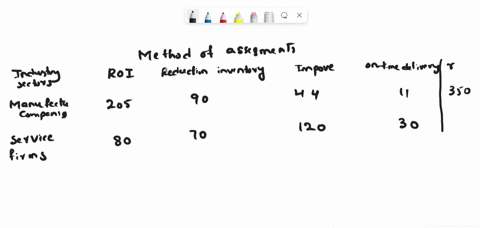 Method of assesments
Industry sectors ROI Reduction inventory Impove on-time delivery r
Manufecte Companis 205 90 44 11 350
Service firms 80 70 120 30